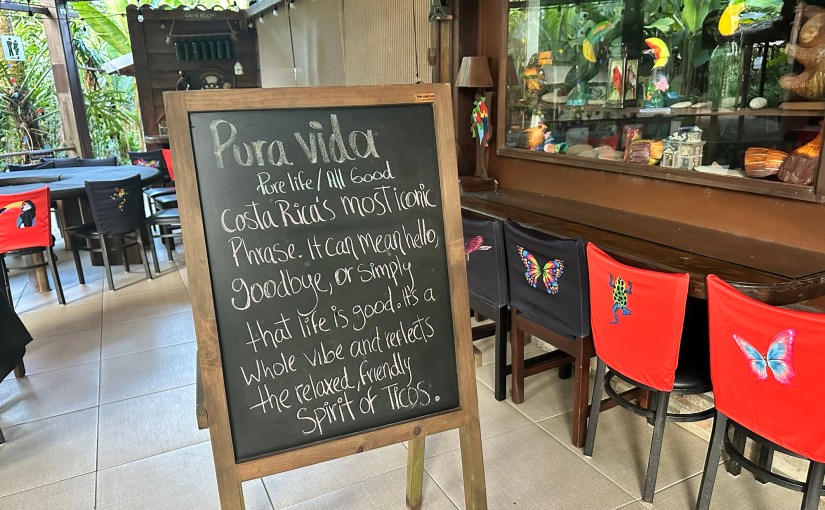 GAME ROOM
Pura vida
Pure life / All Good
Costa Rica's most iconic
Phrase. It can mean hello,
goodbye, or simply
that life is good. It's a
whole vibe and reflects
the relaxed, friendly
Spirit of Ticos.